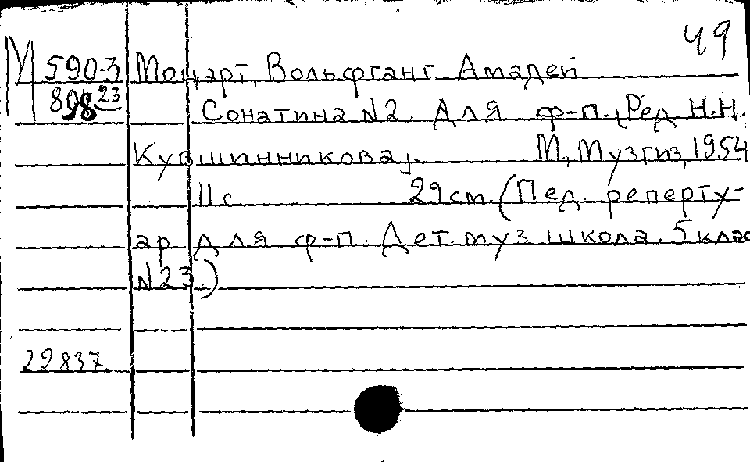 49
М 590-3 Моцарт, Вольфганг Амадей
898 23 Сонатина N2. Для ф-п., Ред. Н.Н.
Кувшинникова]. М., Музгиз, 1954
11 с 29 см. (Пед. реперту-
ар для ф-п. Дет. муз. школа. 5 клас
N23.)
29837